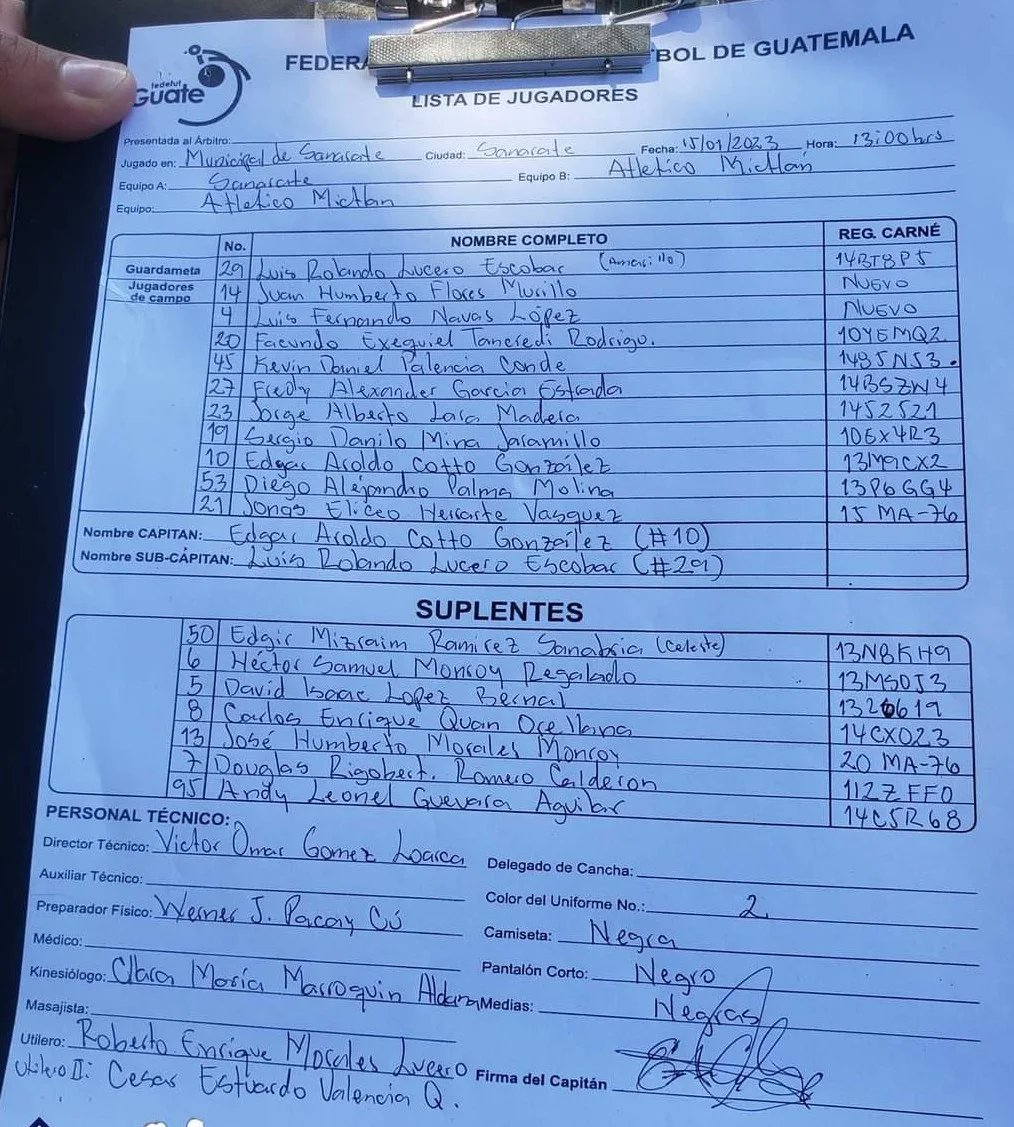 fedefut
Guate
FEDERA BOL DE GUATEMALA
LISTA DE JUGADORES
Presentada al Árbitro:
Jugado en: Municipal de Sanarate Ciudad: Sanarate Fecha: 15/01/2023 Hora: 13:00hrs
Equipo A: Sanarate Equipo B: Atletico Mictlán
Equipo: Atletico Mictlan
No. NOMBRE COMPLETO REG. CARNÉ
Guardameta 29 Luis Rolando Lucero Escobar (Amarillo) 14BT8P5
Jugadores de campo 14 Juan Humberto Flores Murillo NUEVO
4 Luis Fernando Navas López NUEVO
20 Facundo Exequiel Tancredi Rodrigo. 10YEMQ2
45 Kevin Daniel Palencia Conde 1495NS3.
27 Fredy Alexander Garcia Estrada 14BSZW4
23 Jorge Alberto Lara Madera 1452521
19 Sergio Danilo Mina Jaramillo 106X4R3
10 Edgar Aroldo Cotto González 13M9CX2
53 Diego Alejandro Palma Molina 13P6GG4
21 Jonas Eliceo Herrarte Vasquez 15 MA-76
Nombre CAPITAN: Edgar Aroldo Cotto González (#10)
Nombre SUB-CÁPITAN: Luis Rolando Lucero Escobar (#29)
SUPLENTES
50 Edgir Mizraim Ramirez Sanabria (Celeste) 13N8KH9
6 Héctor Samuel Monroy Regalado 13MS0J3
5 David Isaac Lopez Bernal 1320619
8 Carlos Enrique Quan Orellana 14CX023
13 José Humberto Morales Monroy 20 MA-76
7 Douglas Rigobert. Romero Calderon 112ZFF0
95 Andy Leonel Guevara Aguilar 14C5R68
PERSONAL TÉCNICO:
Director Técnico: Victor Omar Gomez Loarca Delegado de Cancha:
Auxiliar Técnico: Color del Uniforme No.: 2
Preparador Físico: Werner J. Pacay Cú Camiseta: Negra
Médico: Pantalón Corto: Negro
Kinesiólogo: Clara María Marroquin Aldana Medias: Negras
Masajista:
Utilero: Roberto Enrique Morales Lucero Firma del Capitán
Utilero II: Cesar Estuardo Valencia Q.